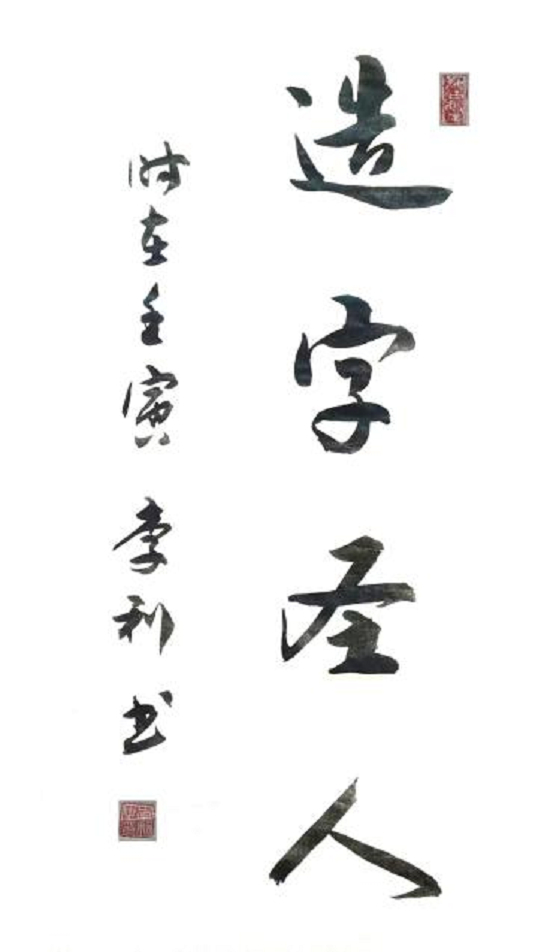 造字圣人
时在壬寅 李利书